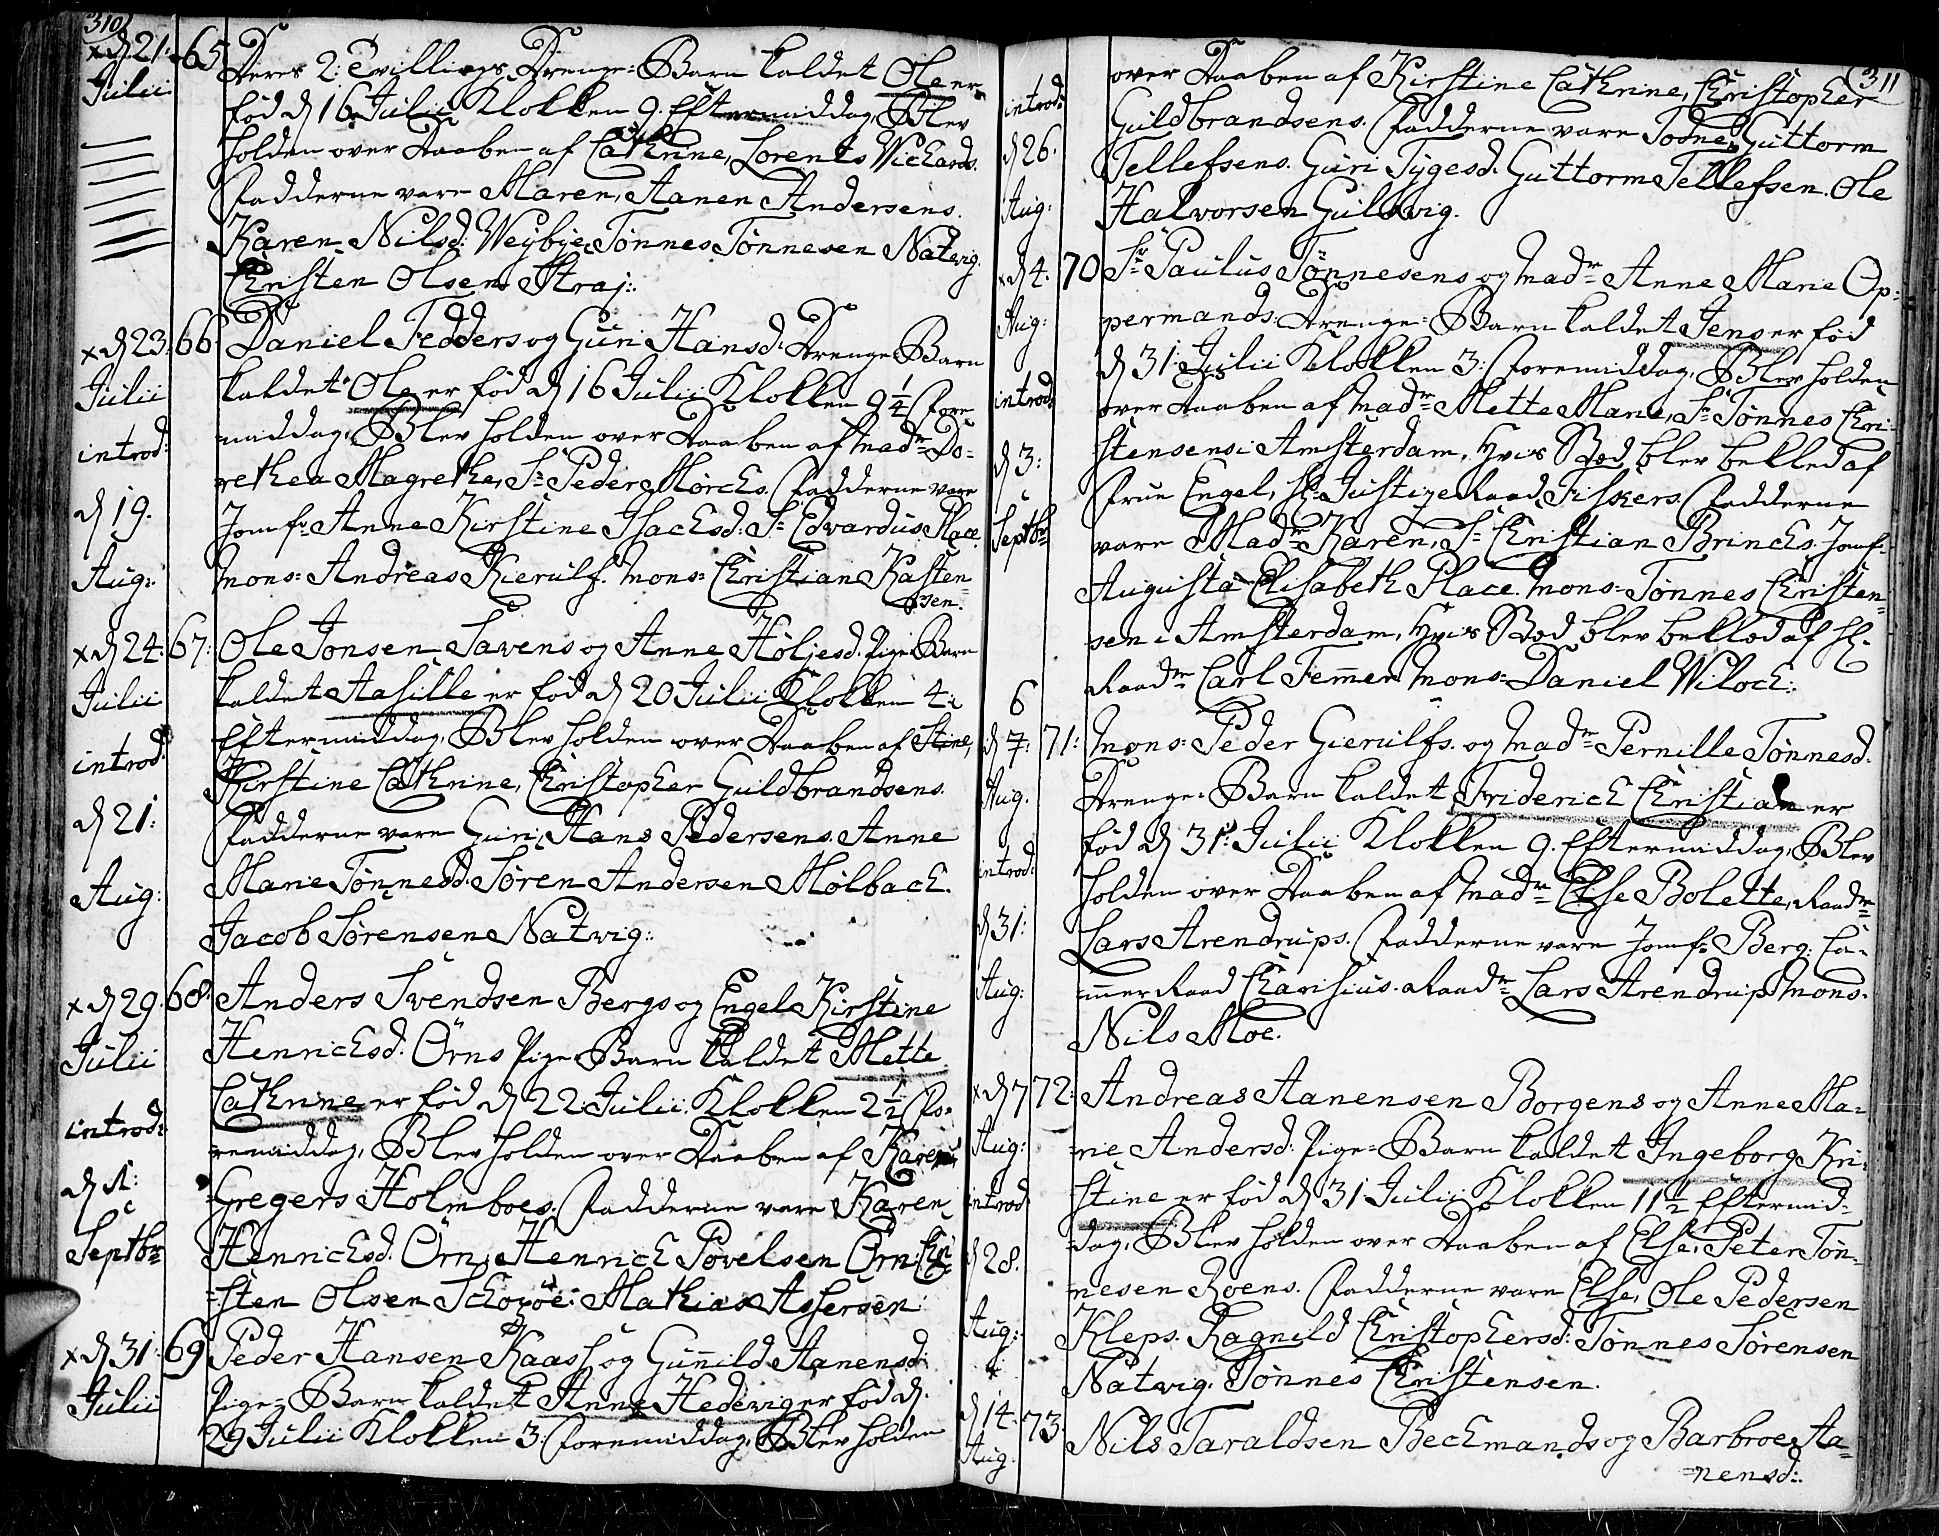 310
x d 21: 65 Deres 2: Tvillings Drenge-Barn kaldet Ole er
Julii fød d 16 Julii Klokken 9. Eftermiddag, Blev
holden over Daaben af Cathrine, Lorents Wichards.
Fadderne vare Maren, Aanen Andersens.
Karen Nilsd: Weybye, Tønnes Tønnesen Natvig.
Christen Olsen Straj:
x d 23. 66. Daniel Fedders og Guri Hansd: Drenge-Barn
Julii kaldet Ole er fød d 16 Julii Klokken 9 1/4 Fore
introd: middag, Blev holden over Daaben af Madm Do-
rethea Magrethe, Sr Peder Mørchs. Fadderne vare
d 19. Jomfr Anne Kirstine Isachsd: Sr Edvardus Place.
Aug: Mons: Andreas Kierulf. Mons: Christian Kasten-
sen.
x d 24. 67: Ole Jonsen Savens og Anne Høljesd: Pige-Barn
Julii kaldet Aasille er fød d 20 Julii Klokken 4:
introd: Eftermiddag, Blev holden over Daaben af Stine,
Kirstine Cathrine, Christopher Guldbrandsens.
d 21: Fadderne vare Guri, Hans Pedersens. Anne
Aug: Marie Tønnesd: Søren Andersen Mølbach.
Jacob Sørensen Natvig:
x d 29. 68: Anders Svendsen Bergs og Engel Kirstine
Julii Henrichsd: Örns Pige-Barn kaldet Mette
introd: Cathrine er fød d 22 Julii Klokken 2 1/2 Fo-
remiddag, Blev holden over Daaben af Karen
d 1: Gregers Holmboes. Fadderne vare Karen
Septbr Henrichsd: Örn, Henrich Povelsen Örn: Chri
sten Olsen Mathias Assersen:
x d 31: 69 Peder Hansen Kaas og Gunnild Aanensd:
Julii Pige-Barn kaldet Anne Hedevig er fød d.
29 Julii Klokken 3: Foremiddag, Blev holden
311
introd: over Daaben af Kirstine Cathrine, Christopher
Guldbrandsens. Fadderne vare Guttorm
d 26. Tellefsens. Guri Tygesd: Guttorm Tellefsen. Ole
Aug: Halvorsen Guldvig.
x d 4. 70 Sr Paulus Tönnesens og Madm Anne Marie Op-
Aug: permands: Drenge-Barn kaldet Jens er fød
d 31: Julii Klokken 3: Foremiddag, Blev holden
introd: over Daaben af Madm Mette Marie, Sr Tønnes Chri-
d 3: stensens i Amsterdam, Hvis Bod blev beklæd af
Frue Engel, Sl: Justize Raad Fiskers. Fadderne
Septbr vare Madm Karen, Sr Christian Brinchs. Jomf:
Augusta Elisabeth Place. Mons: Tønnes Christen-
sen i Amsterdam, Hvis Bod blev beklæd af Hr
Raadm Carl Femmer. Mons: Daniel Wiloch:
6
d 7: 71: Mons: Peder Gierulfs. og Madm Pernille Tønnesd:
Aug. Drenge-Barn kaldet Friderich Christian er
fød d 31: Julii Klokken 9. Eftermiddag, Blev
introd: holden over Daaben af Madm Else Bolette, Raadm
d 31: Lars Arendrups. Fadderne vare Jomfr Berg: Ca-
Aug: mmer Raad Charisius. Raadm Lars Arendrup Mons.
Nils Moe.
x d 7 72: Andreas Aanensen Borgens og Anne Ma-
Aug: rie Andersd: Pige-Barn kaldet Ingeborg Kri-
introd stine er fød d 31 Julii Klokken 11 1/2 Eftermid-
dag, Blev holden over Daaben af Else, Peter Tøn-
d 28. nesen Roens. Fadderne vare Else, Ole Pedersen
Aug: Kleps. Ragnild Christophersd: Tønnes Sørensen
Natvig. Tönnes Christensen.
d 14. 73. Nils Taraldsen Bechmands og Barbroe Aa-
Aug. nensd: